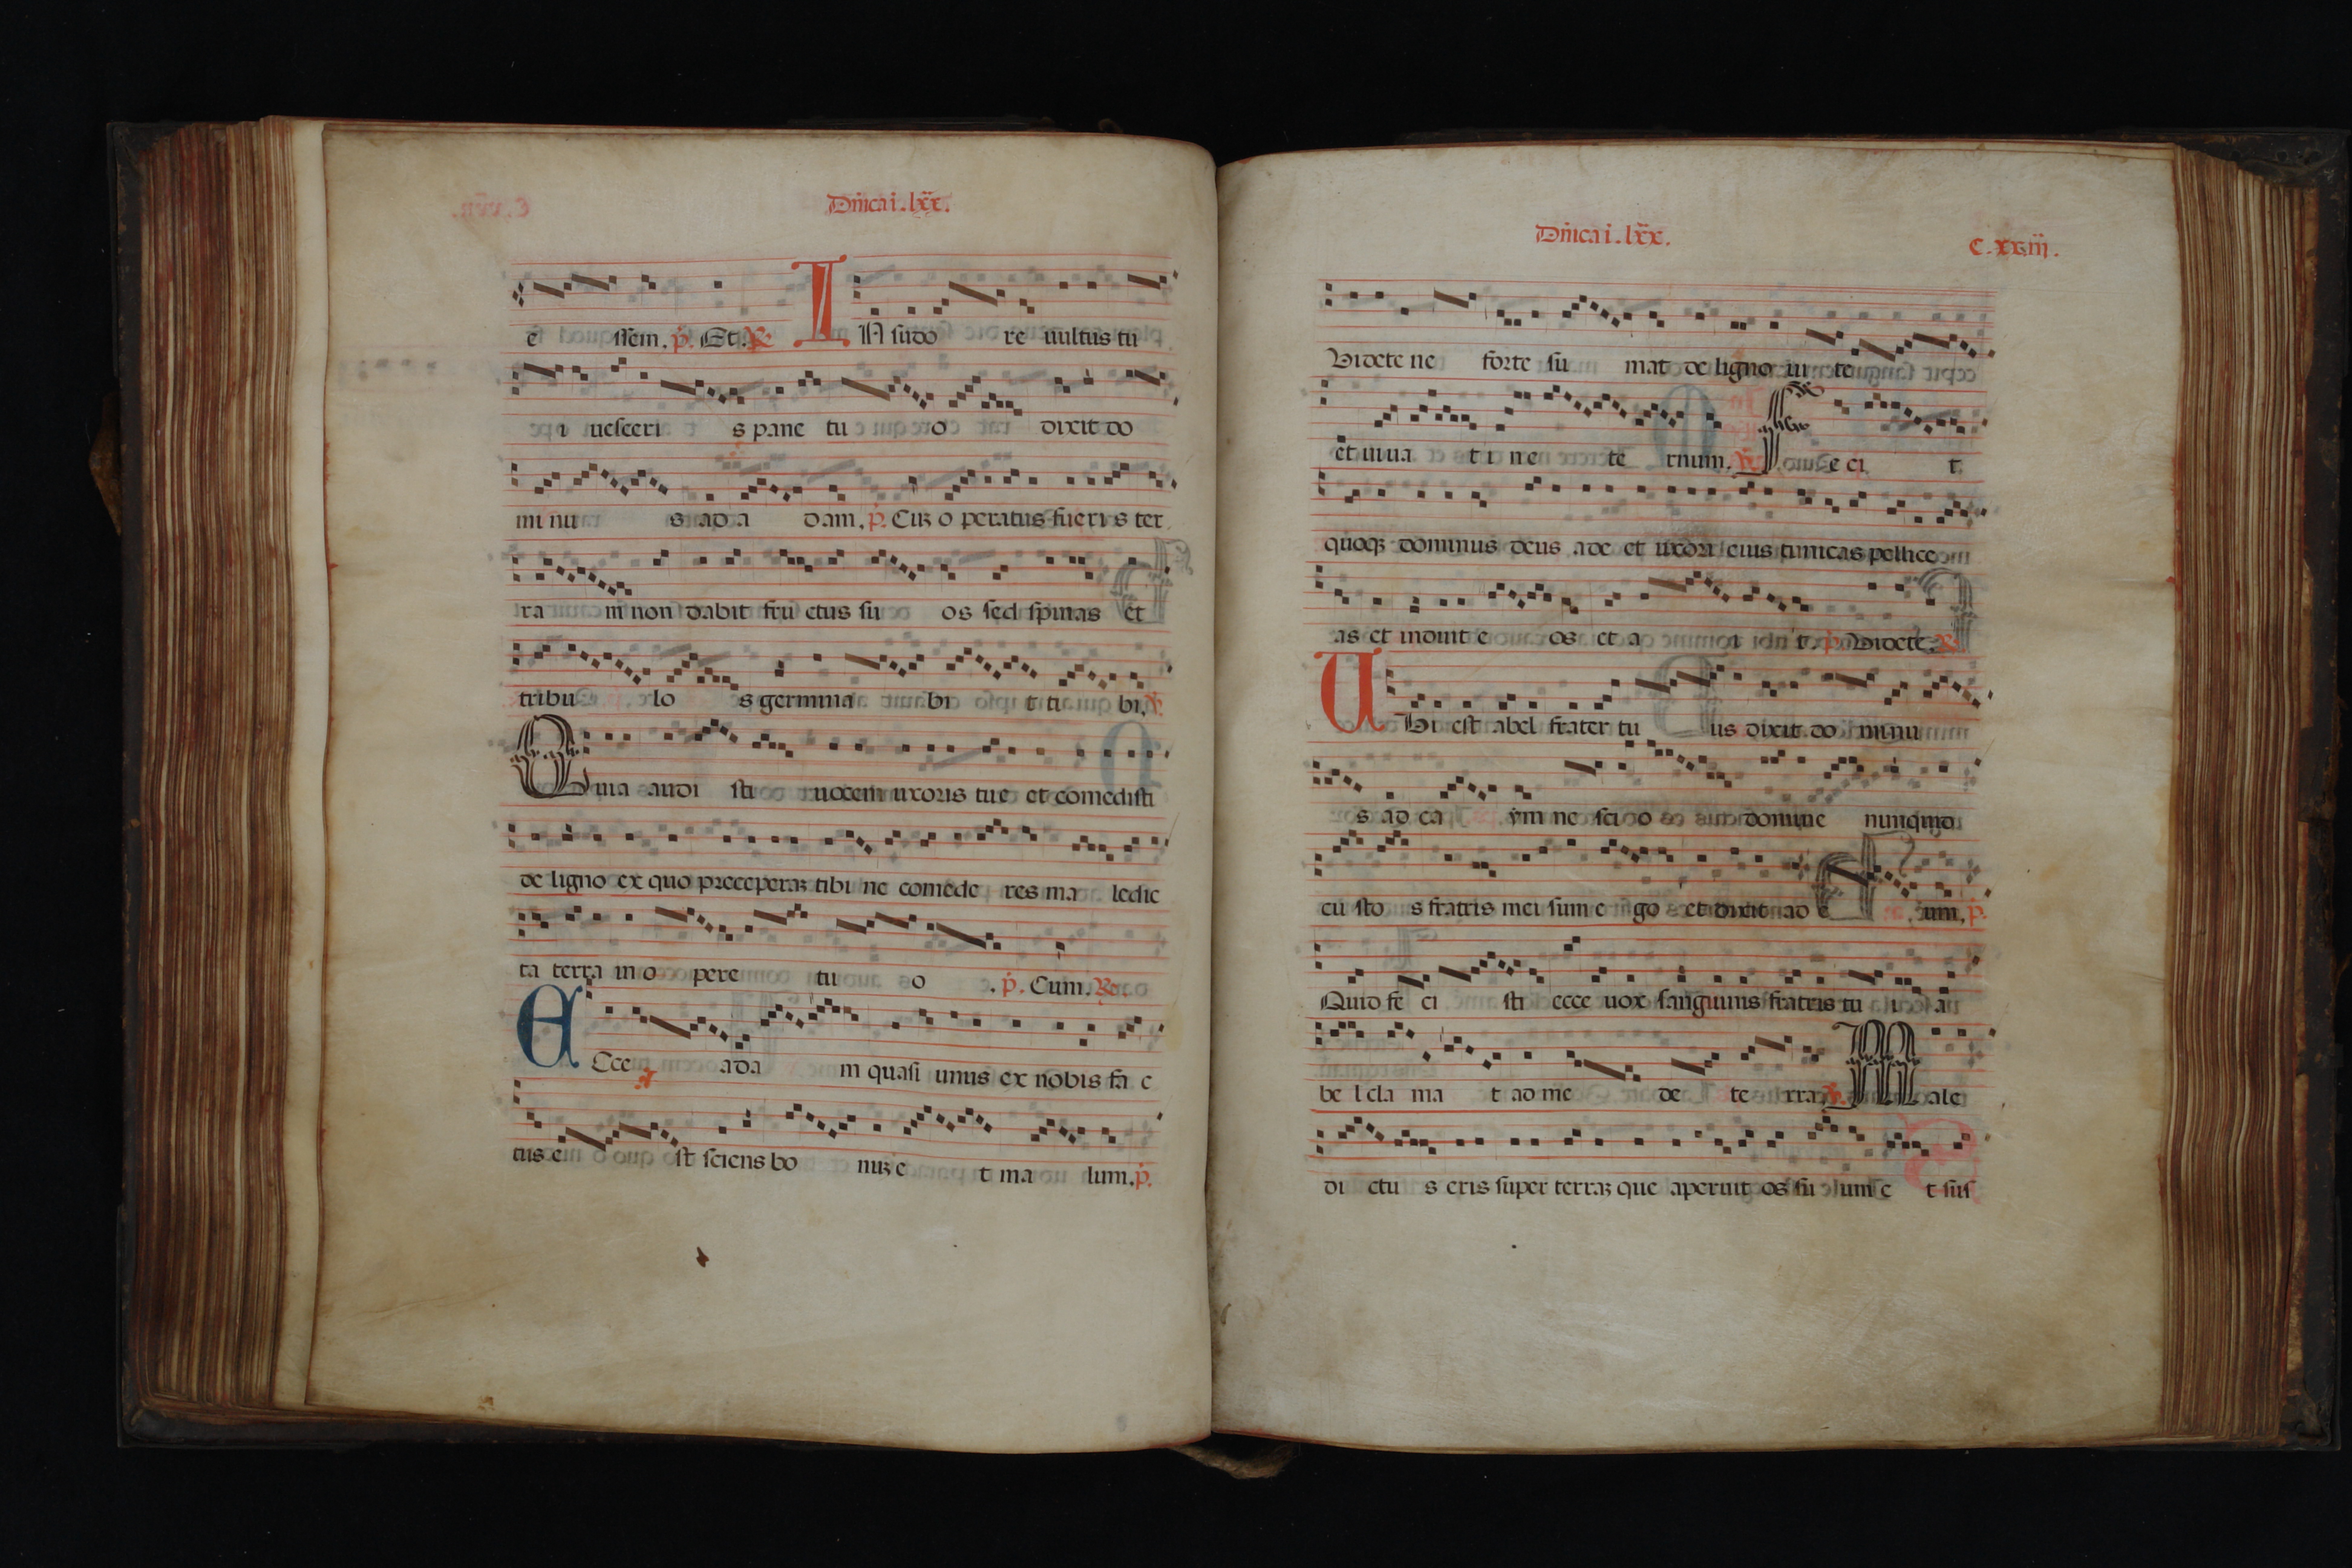 Dñica i. lxx.
e ssem. p̃. Et. ℟.
IN sudo re uultus tu
i uesceri s pane tu o dixit do
minu s ad a dam. p̃. Cuꝫ o peratus fueri s ter
ra m non dabit fru ctus su os sed spinas et
tribu lo s germina bi t ti bi. ℣.
Quia audi sti uocem uxoris tue et comedisti
de ligno ex quo preceperaꝫ tibi ne comede res ma ledic
ta terra in o pere tu o . p̃. Cum. ℟.
ECce ada m quasi unus ex nobis fa c
tus e st sciens bo nuꝫ e t ma lum. p̃.
Dñica i. lxx.
C. xxiii.
Videte ne forte su mat de ligno ui te
et uiua t i n e te rnum. ℣. Fe ci t
quoqꝫ dominus deus ade et uxori eius tunicas pellice
as et induit e os et a i t. p̃. Videte. ℟.
UBi est abel frater tu us dixit do minu
s ad ca ym ne sci o domine nunquid
cu sto s fratris mei sum e go et dixit ad e um. p̃.
Quid fe ci sti ecce uox sanguinis fratris tu i a
be l cla ma t ad me de te rra. ℣. Male
di ctu s eris super terraꝫ que aperuit os su um e t sus